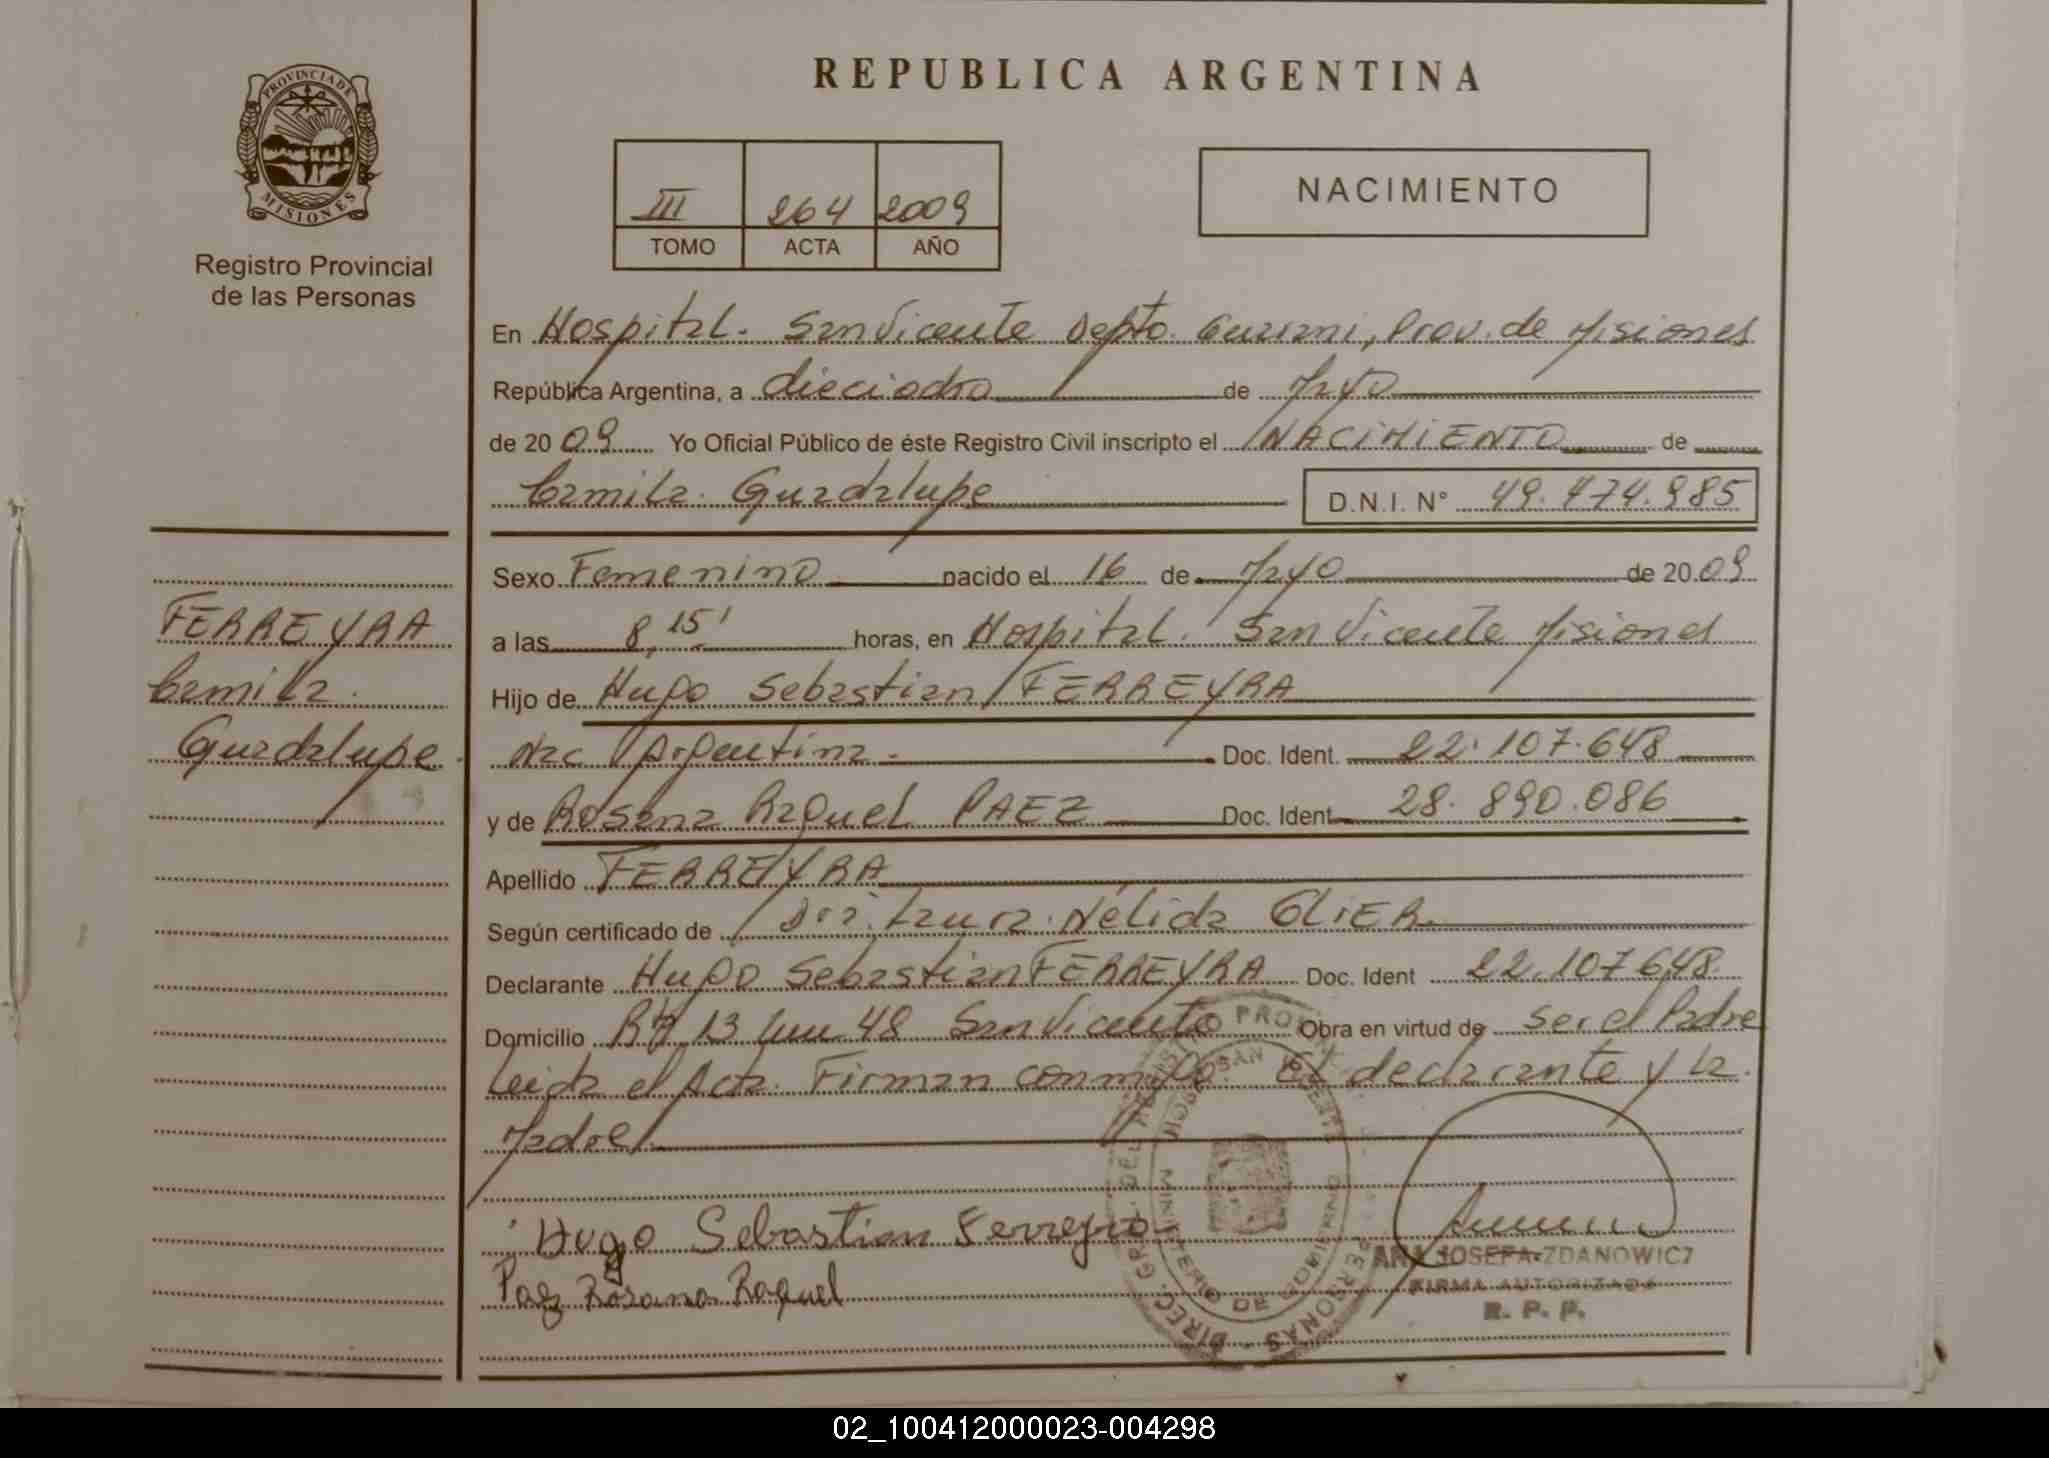 REPUBLICA ARGENTINA
PROVINCIA DE MISIONES
Registro Provincial
de las Personas
III 264 2009
TOMO ACTA AÑO
NACIMIENTO
En Hospital. San Vicente Depto. Guarani, Prov. de Misiones
República Argentina, a dieciocho de Mayo
de 2009 Yo Oficial Público de éste Registro Civil inscripto el NACIMIENTO de
Camila Guadalupe D.N.I. N° 49.474.985
Sexo Femenino nacido el 16 de Mayo de 2009
a las 8,15' horas, en Hospital. San Vicente Misiones
Hijo de Hugo Sebastian FERREYRA
Nac Argentina. Doc. Ident. 22.107.648
y de Rosana Raquel PAEZ Doc. Ident 28.890.086
Apellido FERREYRA
Según certificado de Dra. Laura Nélida OLIER
Declarante Hugo Sebastian FERREYRA Doc. Ident 22.107648
Domicilio 13 48 San Vicente Obra en virtud de ser el Padre
Leida el Acta. Firman conmigo El declarante y la
Madre
FERREYRA
Camila
Guadalupe
Hugo Sebastian Ferreyra
Paez Rosana Raquel
ANA JOSEFA ZDANOWICZ
FIRMA AUTORIZADA
R. P. P.
DIREC. GRAL. DEL REGISTRO PROVINC. PERSONAS
HOSP. SAN VICENTE
MINISTERIO DE GOBIERNO
02_100412000023-004298